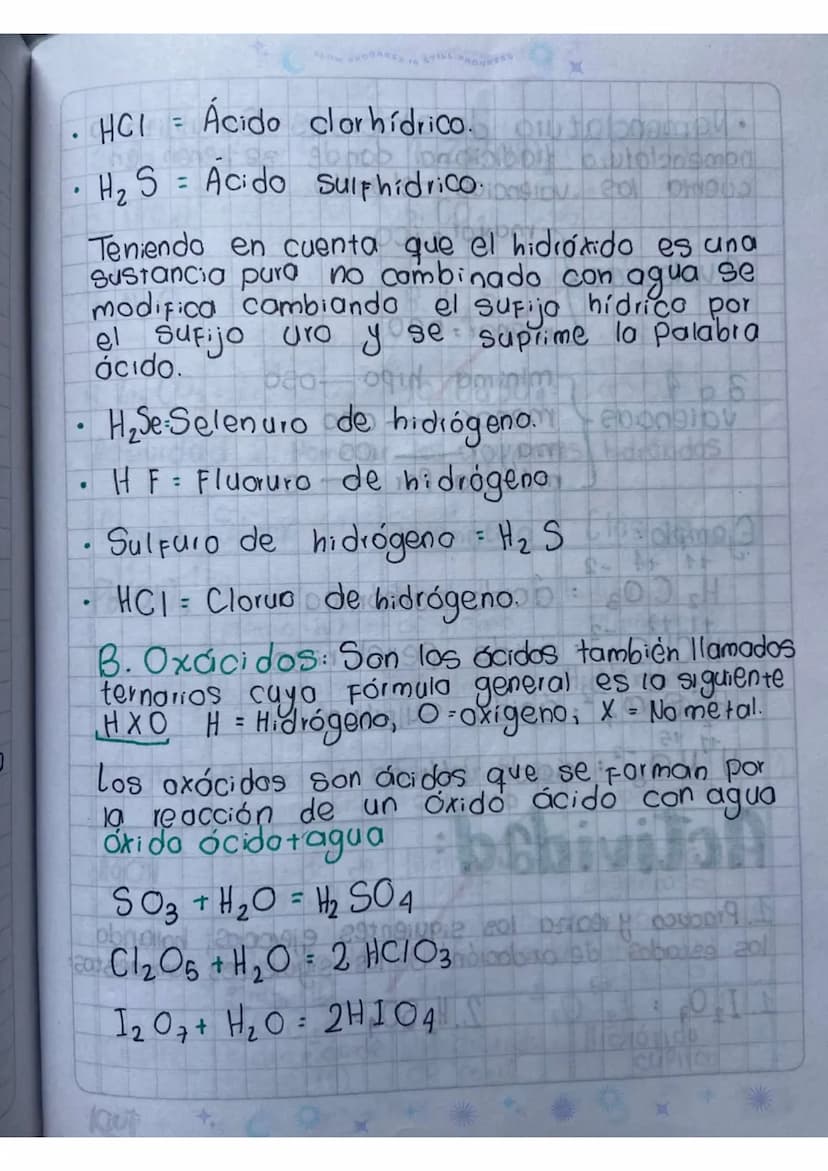 • HCl = Ácido clorhídrico.
• H₂S = Ácido sulphídrico.
Teniendo en cuenta que el hidróxido es una
sustancia pura no combinado con agua se
modifica cambiando el sufijo hídrico por
el sufijo uro y se suprime la palabra
ácido.
• H₂Se=Selenuro de hidrógeno.
• H F = Fluoruro de hidrógeno
• Sulfuro de hidrógeno = H₂S
• HCl = Cloruo de hidrógeno.
B. Oxácidos: Son los ácidos también llamados
ternarios cuya fórmula general es la siguiente
HXO H = Hidrógeno, O =oxígeno; X = No metal.
Los oxácidos son ácidos que se forman por
la reacción de un óxido ácido con agua
óxido ácido+agua
SO₃ + H₂O = H₂SO₄
Cl₂O₅ + H₂O = 2 HClO₃
I₂O₇ + H₂O = 2HIO₄